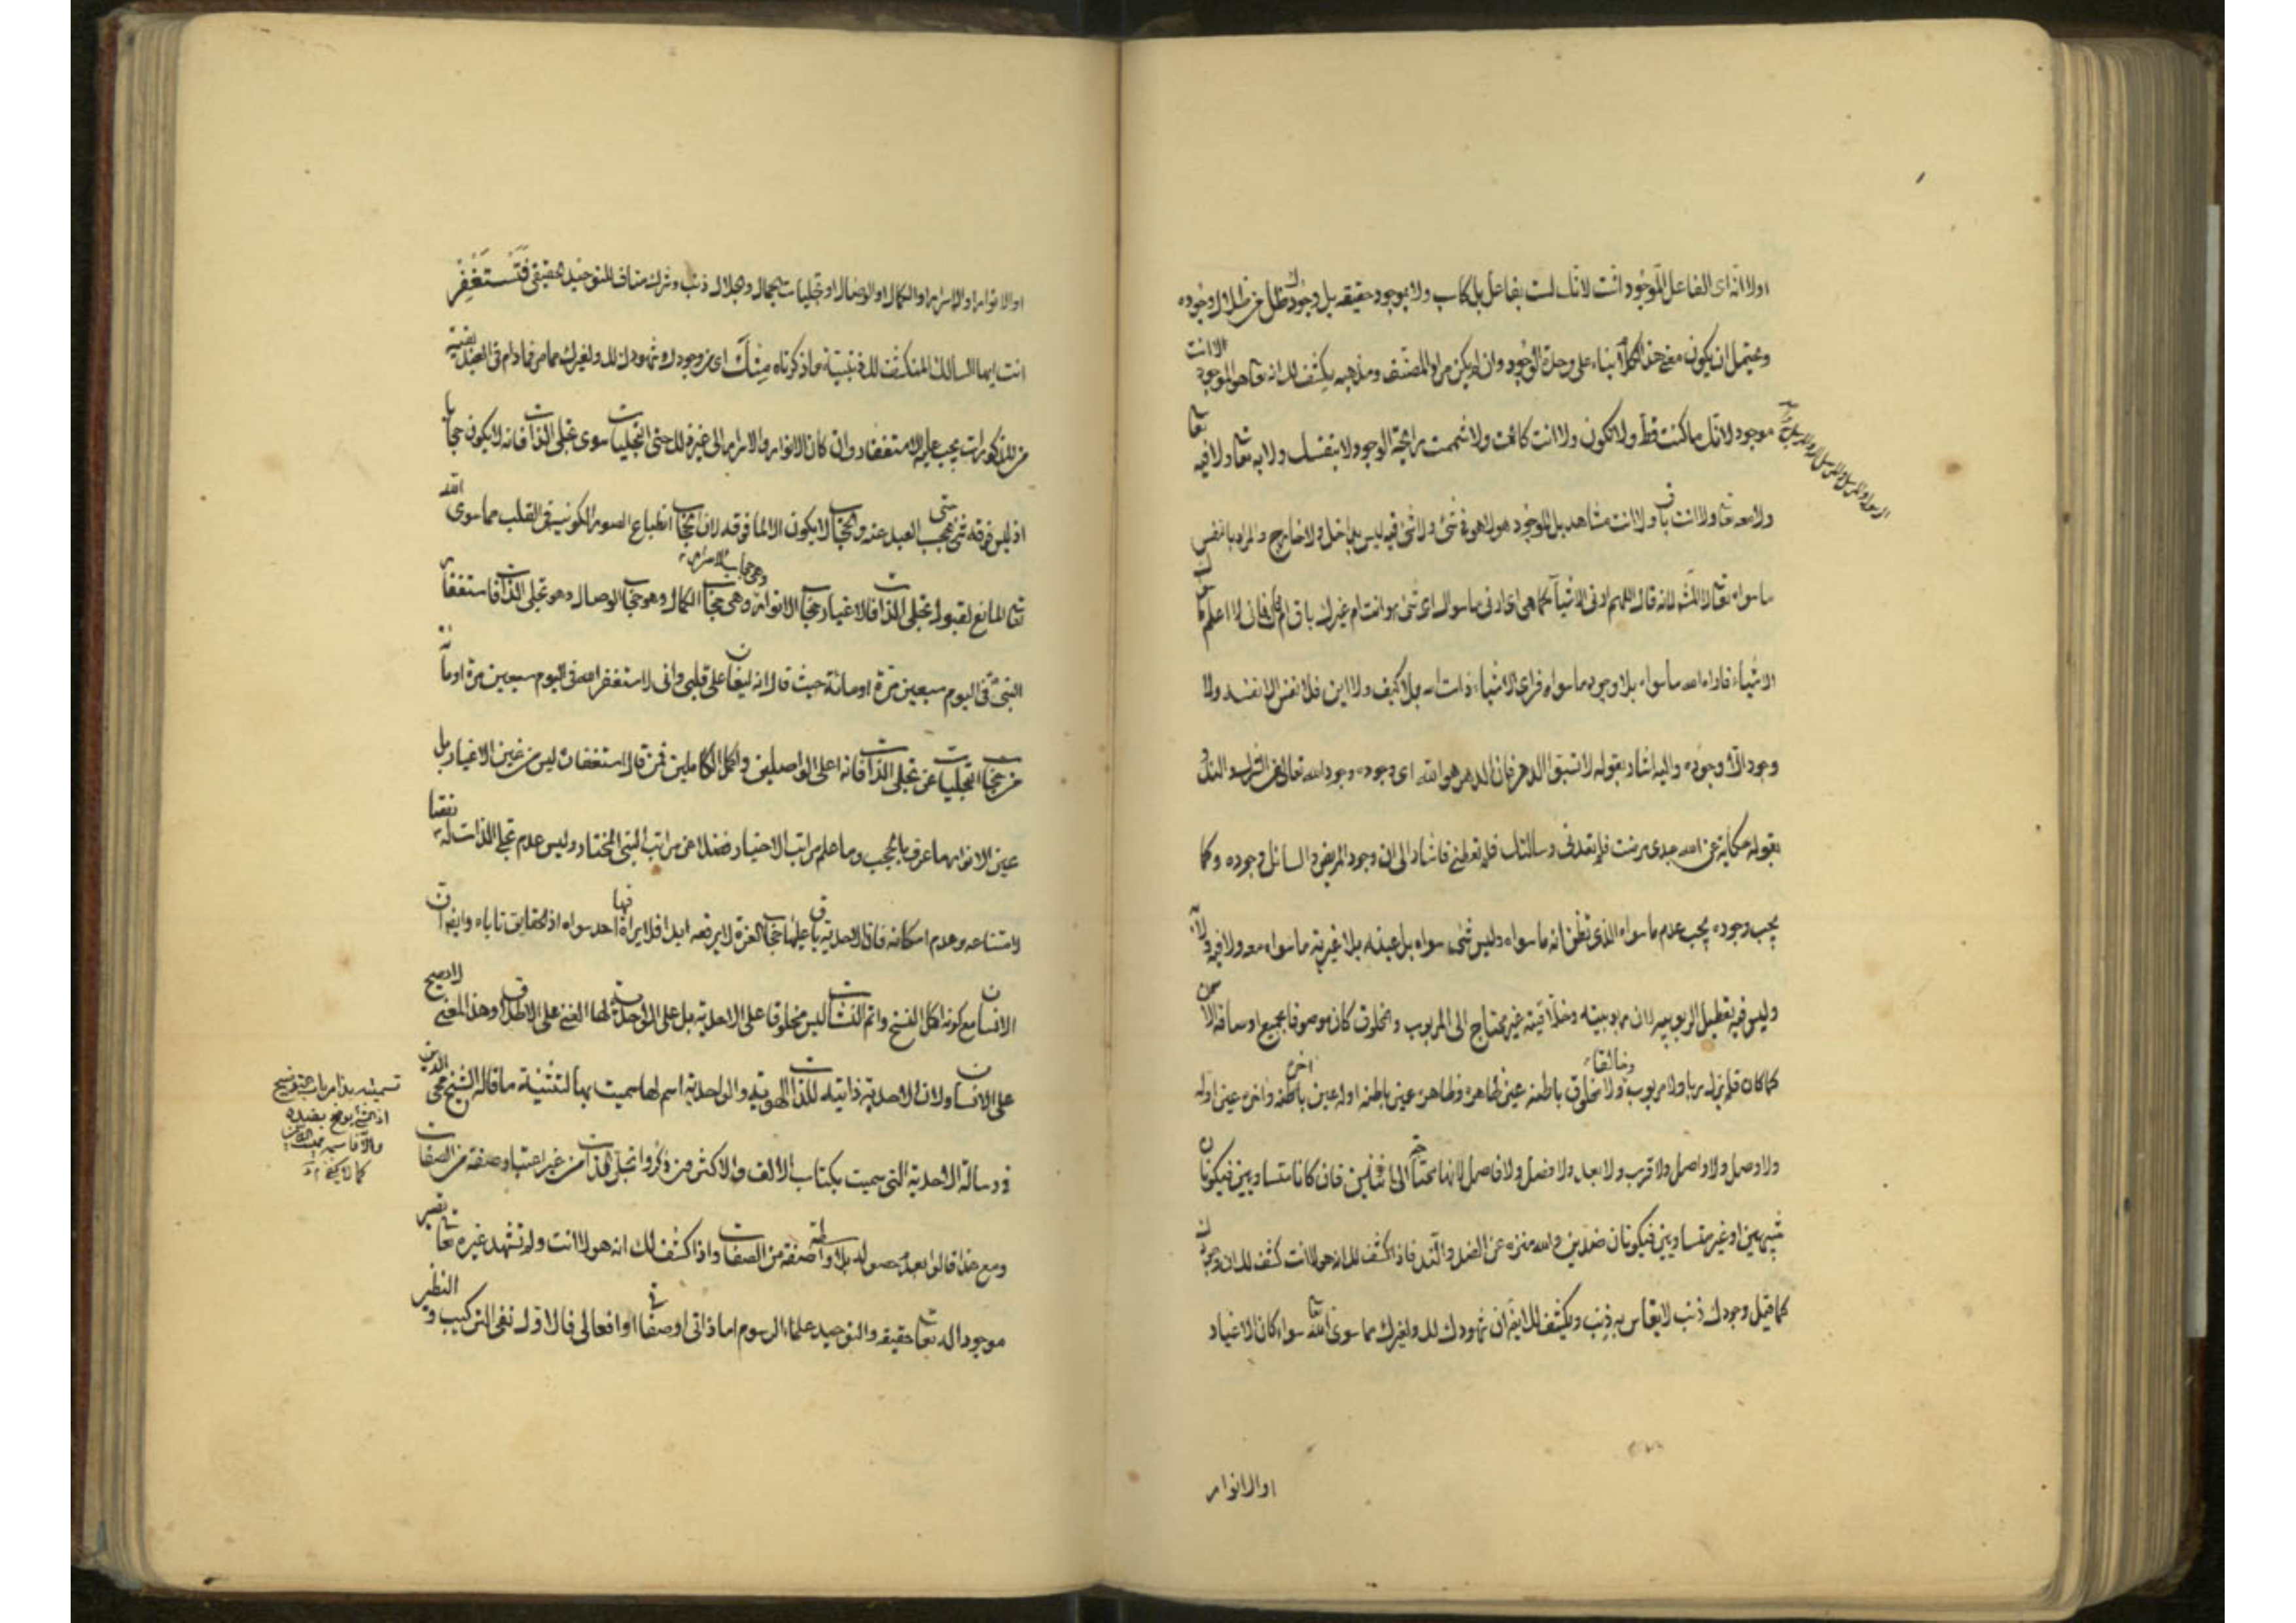 اولا انه اى الفاعل الموجود انت لانك لست بفاعل بل كاسب ولا بموجود حقيقه بل وجودك ظل من ظلال وجوده
ويحتمل ان يكون معنى هذا الكلام بناء على وحدة الوجود وان لم يكن مراد المصنف ومذهبه يكشف لك انه تعا هو الموجود لا انت
موجود لانك ما كنت قط ولا تكون ولا انت كائن ولا شممت رايحة الوجود لا بنفسك ولا به تعا ولا فيه تعا
ولا معه تعا ولا انت باق ولا انت مشاهد بل الموجود هو لا هو فى شئ ولا شئ فيه ليس بداخل ولا خارج والمراد بالنفس
ما سواه تعا لانه قال اللهم ارنى الاشياء كما هى اى ارنى ما سواك اى شئ هو انت ام غيرك باق ام فان لا اعلم
الاشياء فاراه الله ما سواه بلا وجود ما سواه فراى الاشياء ذات الله بلا كيف ولا اين فلا نفس الا نفسه ولا
وجود الا وجوده واليه اشار بقوله لا تسبوا الدهر فان الدهر هو الله اى وجوده وجود الله تعالى عن الشريك والند و
بقوله حكاية عن الله عبدى مرضت فلم تعدنى وسالتك فلم تعطنى فاشار الى ان وجود المريض والسائل وجوده وكما
يجب وجوده يجب عدم ما سواه الذى تظن انه ما سواه وليس شئ سواه بل عينه بلا غيرية ما سواه معه ولا فيه ولا
وليس فيه تعطيل الربوبيه لان ربوبيته وخلاقيته غير محتاج الى المربوب والمخلوق كان موصوفا بجميع اوصافه الا
كما كان فلم يزل ربا ولا مربوب وخالقا ولا مخلوق باطنه عين ظاهره وظاهره عين باطنه اوله عين اخره واخره عين اوله
ولا وصل ولا واصل ولا قرب ولا بعد ولا فصل ولا فاصل لانها محتاج الى اثنين فان كانا متساويين فيكونان
شبيهين او غير متساويين فيكونان ضدين والله منزه عن الضد والند فاذا كشف لك انه هو لا انت كشف لك ان وجودك
كما قيل وجودك ذنب لا يقاس به ذنب ويكشف لك ايضا ان شهودك لك ولغيرك مما سوى الله تعا سواء كان الاغيار
او الانوار
او الانوار او الاسرار او الكمال او الوصال او تجليات الجمال وجلال ذنب وشرك مناف للتوحيد الحقيقى فتستغفر
انت ايها السالك المنكشف لك ما ذكرناه منك اى من وجودك وشهودك لك ولغيرك مما مر فما دام فى العبد بقية
من المذكورات يجب عليه الاستغفار وان كان الانوار والاسرار الى غير ذلك حتى التجليات سوى تجلى الذات فانه لا يكون حجابا
اذ ليس فوقه شئ حتى يحجب العبد عنه والحجاب لا يكون الا لما فوقه لان الحجاب انطباع الصور الكونيه فى القلب مما سوى الله
تعا المانع لقبول تجلى الذات فالاغيار حجاب الانوار وهى حجاب الاسرار وهى حجاب الكمال وهو حجاب الوصال وهو تجلى الذات فاستغفار
النبى فى اليوم سبعين مرة او مائة حيث قال انه ليغان على قلبى وانى لاستغفر الله فى اليوم سبعين مرة او مائة
من حجاب التجليات عن تجلى الذات فانه اعلى الواصلين واكمل الكاملين فمن قال استغفاره ليس من غين الاغيار بل
غين الانوار ما عرف بالحجب وما علم مراتب الاخيار فضلا عن مراتب النبى المختار وليس عدم تجلى الذات له نقصا
لامتناعه وعدم امكانه فان الاحدية باق عليها حجاب العزة لا يرفعه ابدا فلا يراه فيها احد سواه اذ الحقايق تاباه وايضا ان
الانسان مع كونه اكمل النسخ واتم النشات ليس مخلوقا على الاحدية بل على الواحدية لها الغنى على الاطلاق وهذا المعنى لا يصح
على الانسان ولان الاحدية ذاتية للذات الهوية والواحدية اسم لها سميت بها التثنية ما قاله الشيخ محى الدين
فى رسالة الاحدية التى سميت بكتاب الالف والاكثرون ذكروا تجلى الذات من غير اعتبار صفة من الصفات
ومع هذا قالوا بعدم حصوله بلا واسطة صفة من الصفات واذا كشف لك انه هو لا انت ولم تشهد غيره تعا تصير
موجودا له تعا حقيقه والتوحيد علماء الرسوم اما ذاتى او صفاتى او افعالى فالاول نفى التركيب و النظير